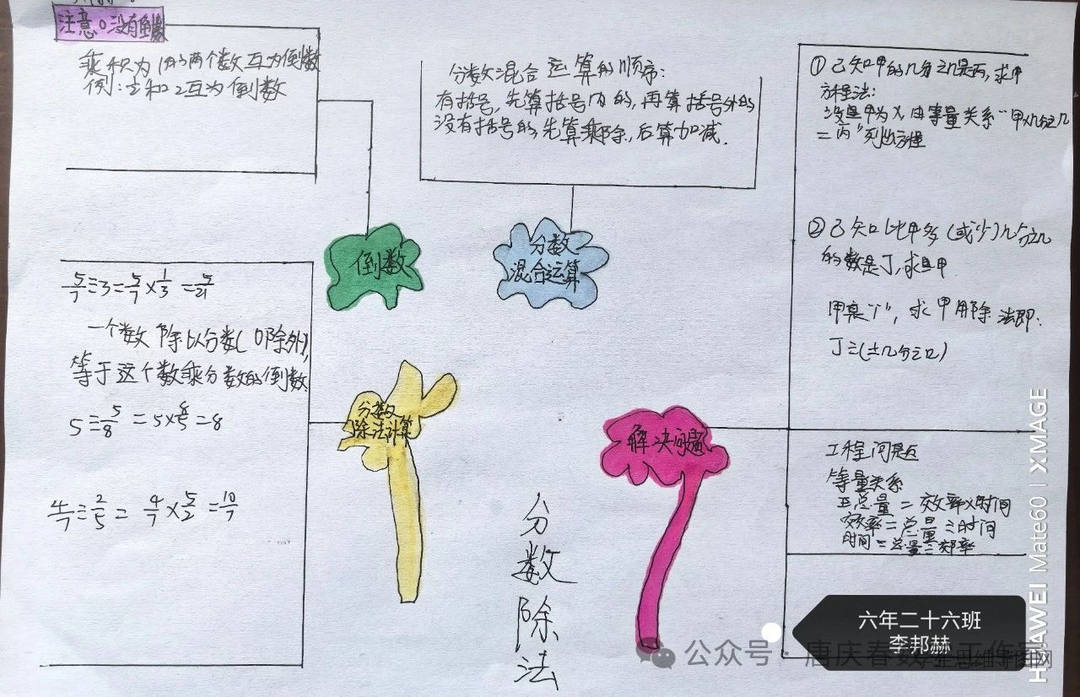 注意:0没有倒数
乘积为1的两个数互为倒数
例:½和2互为倒数
分数混合运算的顺序:
有括号,先算括号内的,再算括号外的
没有括号的,先算乘除,后算加减.
①已知甲的几分之几是丙,求甲
方程法:
设甲为X,由等量关系“甲×几分之几
=丙”列出方程
②已知比甲多(或少)几分之几
的数是丁,求甲.
求甲用除法即:
倒数
分数
混合运算
5/7÷3=5/7×1/3=5/21
一个数除以分数(0除外),
等于这个数乘分数的倒数
5÷5/8=5×8/5=8
4/7÷2/5=4/7×5/2=10/7
分数
除法计算
解决问题
工程问题
等量关系
总量=效率×时间
效率=总量÷时间
时间=总量÷效率
分数除法
六年二十六班
李邦赫
公众号·唐庆春
HUAWEI Mate60 | XMAGE